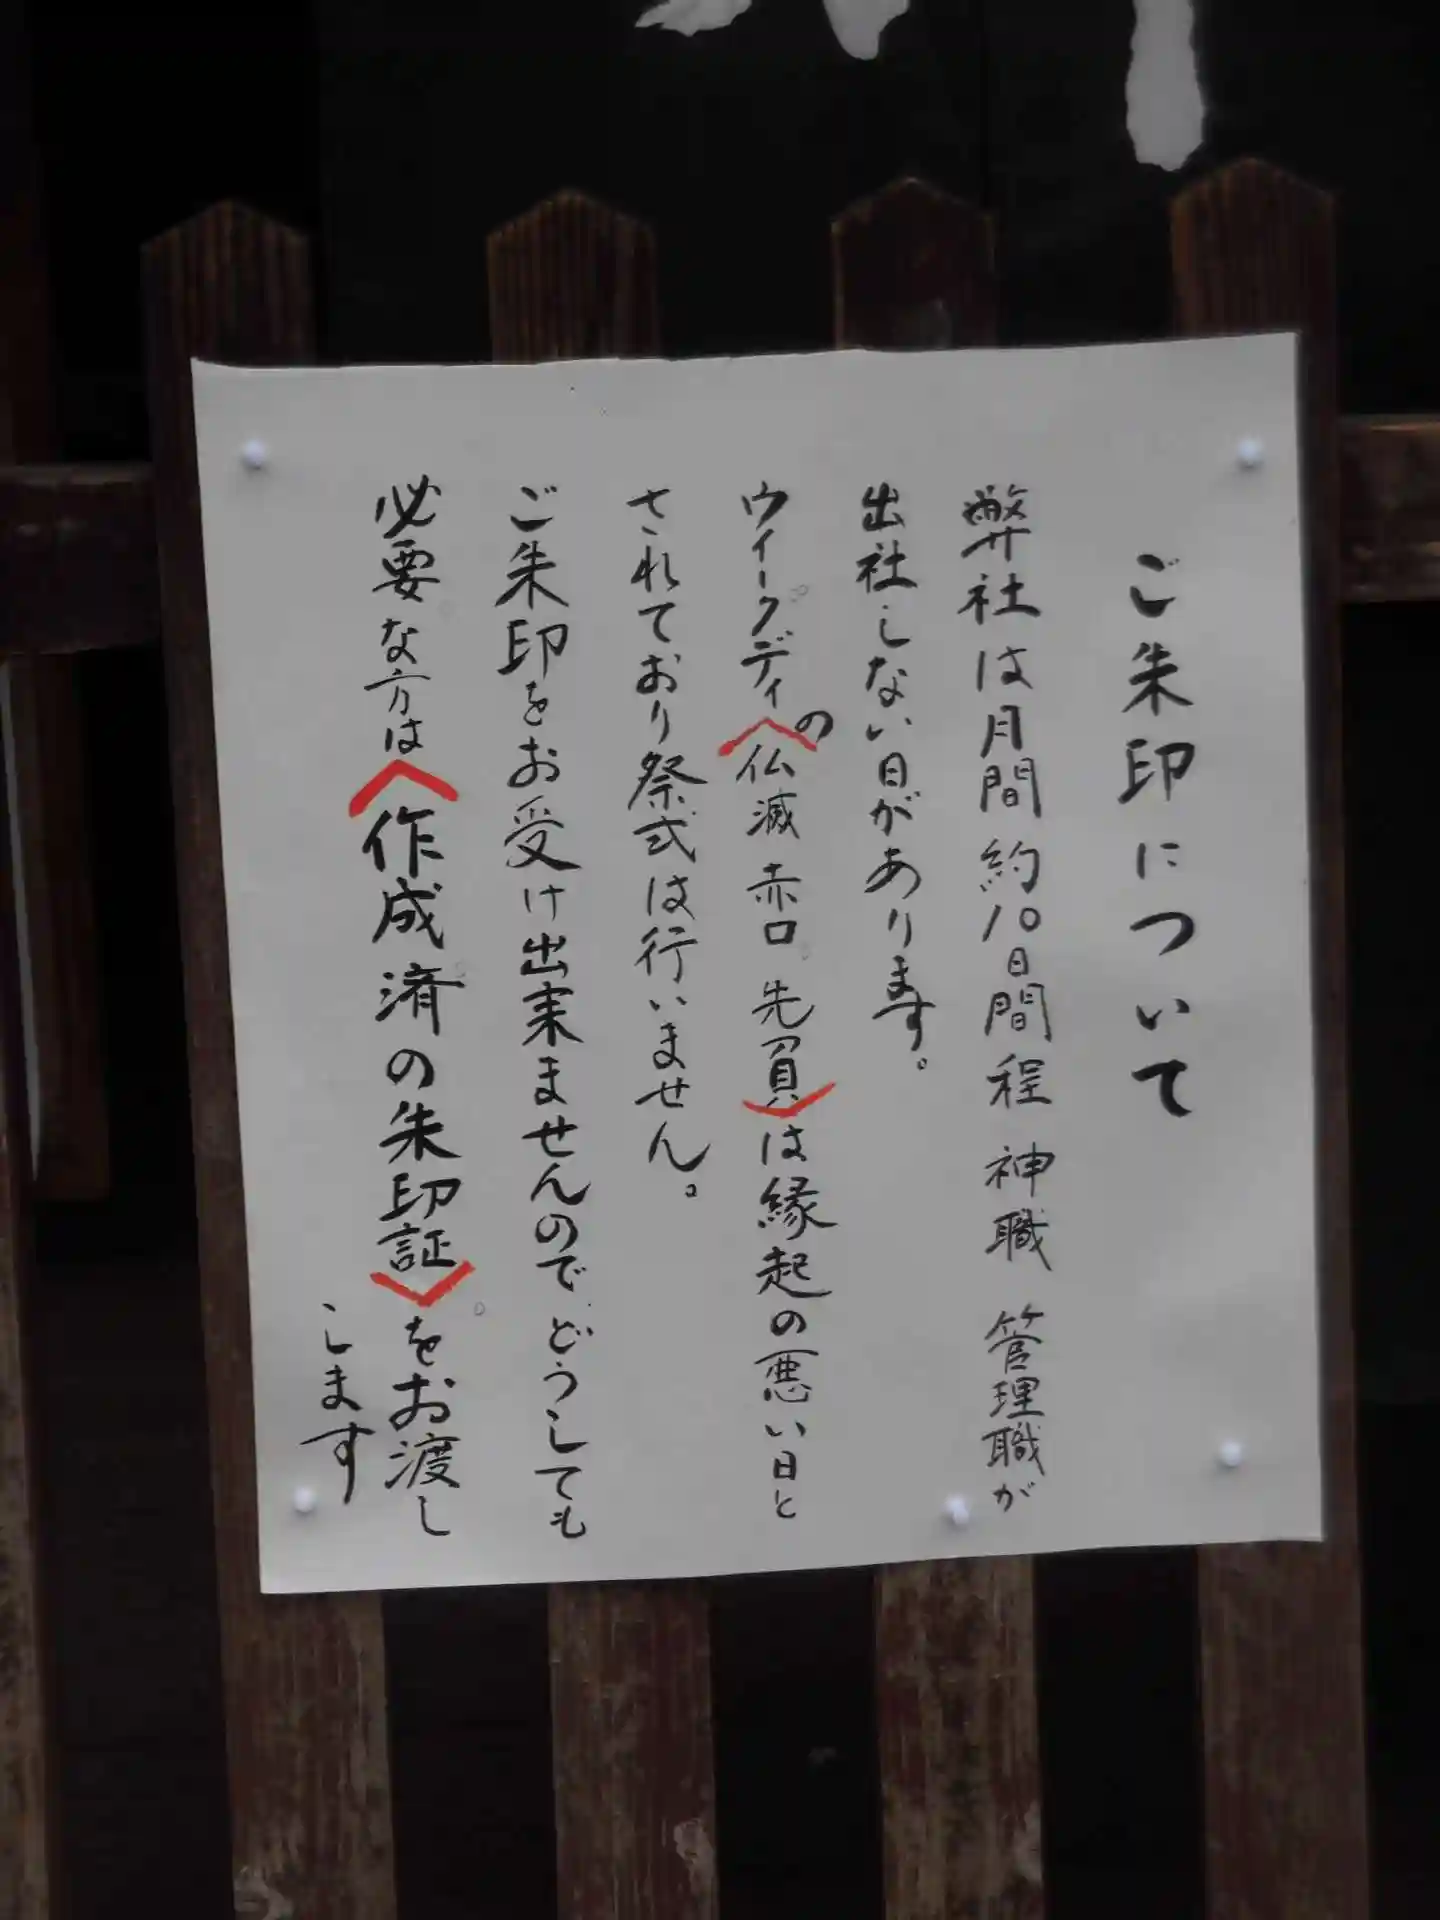 ご朱印について
弊社は月間約10日間程 神職 管理職が
出社しない日があります。
ウィークディの〈仏滅 赤口 先負〉は縁起の悪い日と
されており祭式は行いません。
ご朱印をお受け出来ませんのでどうしても
必要な方は〈作成済の朱印証〉をお渡し
します